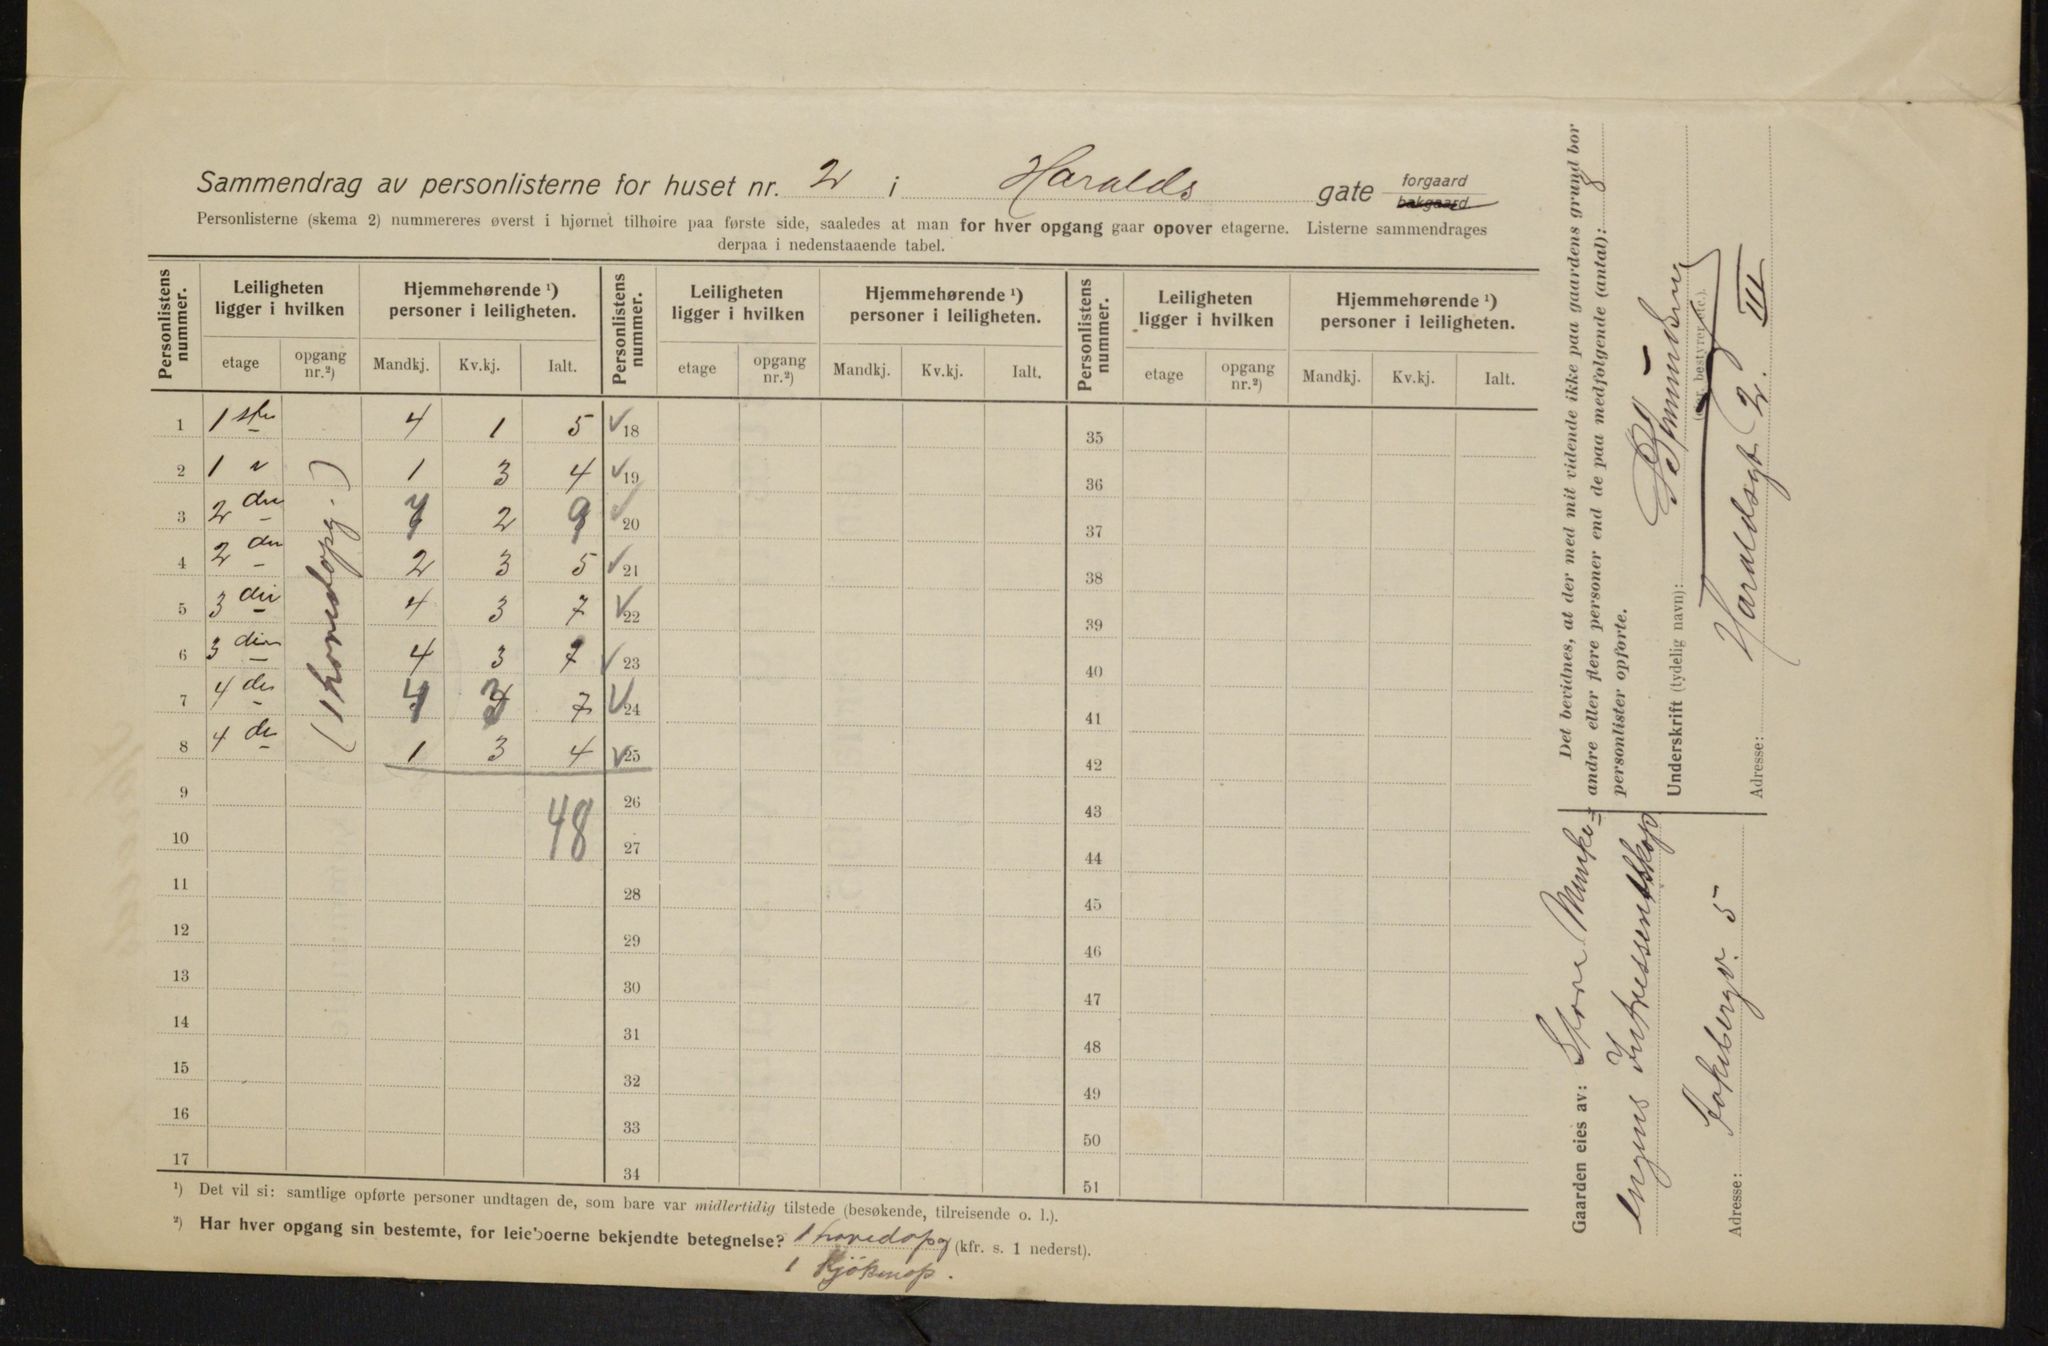 Sammendrag av personlisterne for huset nr. 2 i Haralds gate forgaard bakgaard.
Personlisterne (skema 2) nummereres øverst i hjørnet tilhøire paa første side, saaledes at man for hver opgang gaar opover etagerne. Listerne sammendrages
derpaa i nedenstaaende tabel.
Personlistens nummer. Leiligheten ligger i hvilken Hjemmehørende ¹) personer i leiligheten. Personlistens nummer. Leiligheten ligger i hvilken Hjemmehørende ¹) personer i leiligheten. Personlistens nummer. Leiligheten ligger i hvilken Hjemmehørende ¹) personer i leiligheten.
etage opgang nr.²) Mandkj. Kv.kj. Ialt. etage opgang nr.²) Mandkj. Kv.kj. Ialt. etage opgang nr.²) Mandkj. Kv.kj. Ialt.
1 1 ste 4 1 5 18 35
2 1 " 1 3 4 19 36
3 2 den 7 2 9 20 37
4 2 den 2 3 5 21 38
5 3 die 4 3 7 22 39
6 3 die 4 3 7 23 40
7 4 de 4 3 7 24 41
8 4 de 1 3 4 25 42
(1 hovedopg.)
9 26 43
48
10 27 44
11 28 45
12 29 46
13 30 47
14 31 48
15 32 49
16 33 50
17 34 51
¹) Det vil si: samtlige opførte personer undtagen de, som bare var midlertidig tilstede (besøkende, tilreisende o. l.).
²) Har hver opgang sin bestemte, for leieboerne bekjendte betegnelse? 1 hovedopg (kfr. s. 1 nederst).
1 Kjøkenop.
Det bevidnes, at der med mit vidende ikke paa gaardens grund bor
andre eller flere personer end de paa medfølgende (antal): 8
personlister opførte.
Underskrift (tydelig navn):
(eier, bestyrer etc.).
Adresse: Haraldsgt 2. III
Gaarden eies av: Store Munke=
engens Intressentskap
Adresse: Jakobsgv. 5